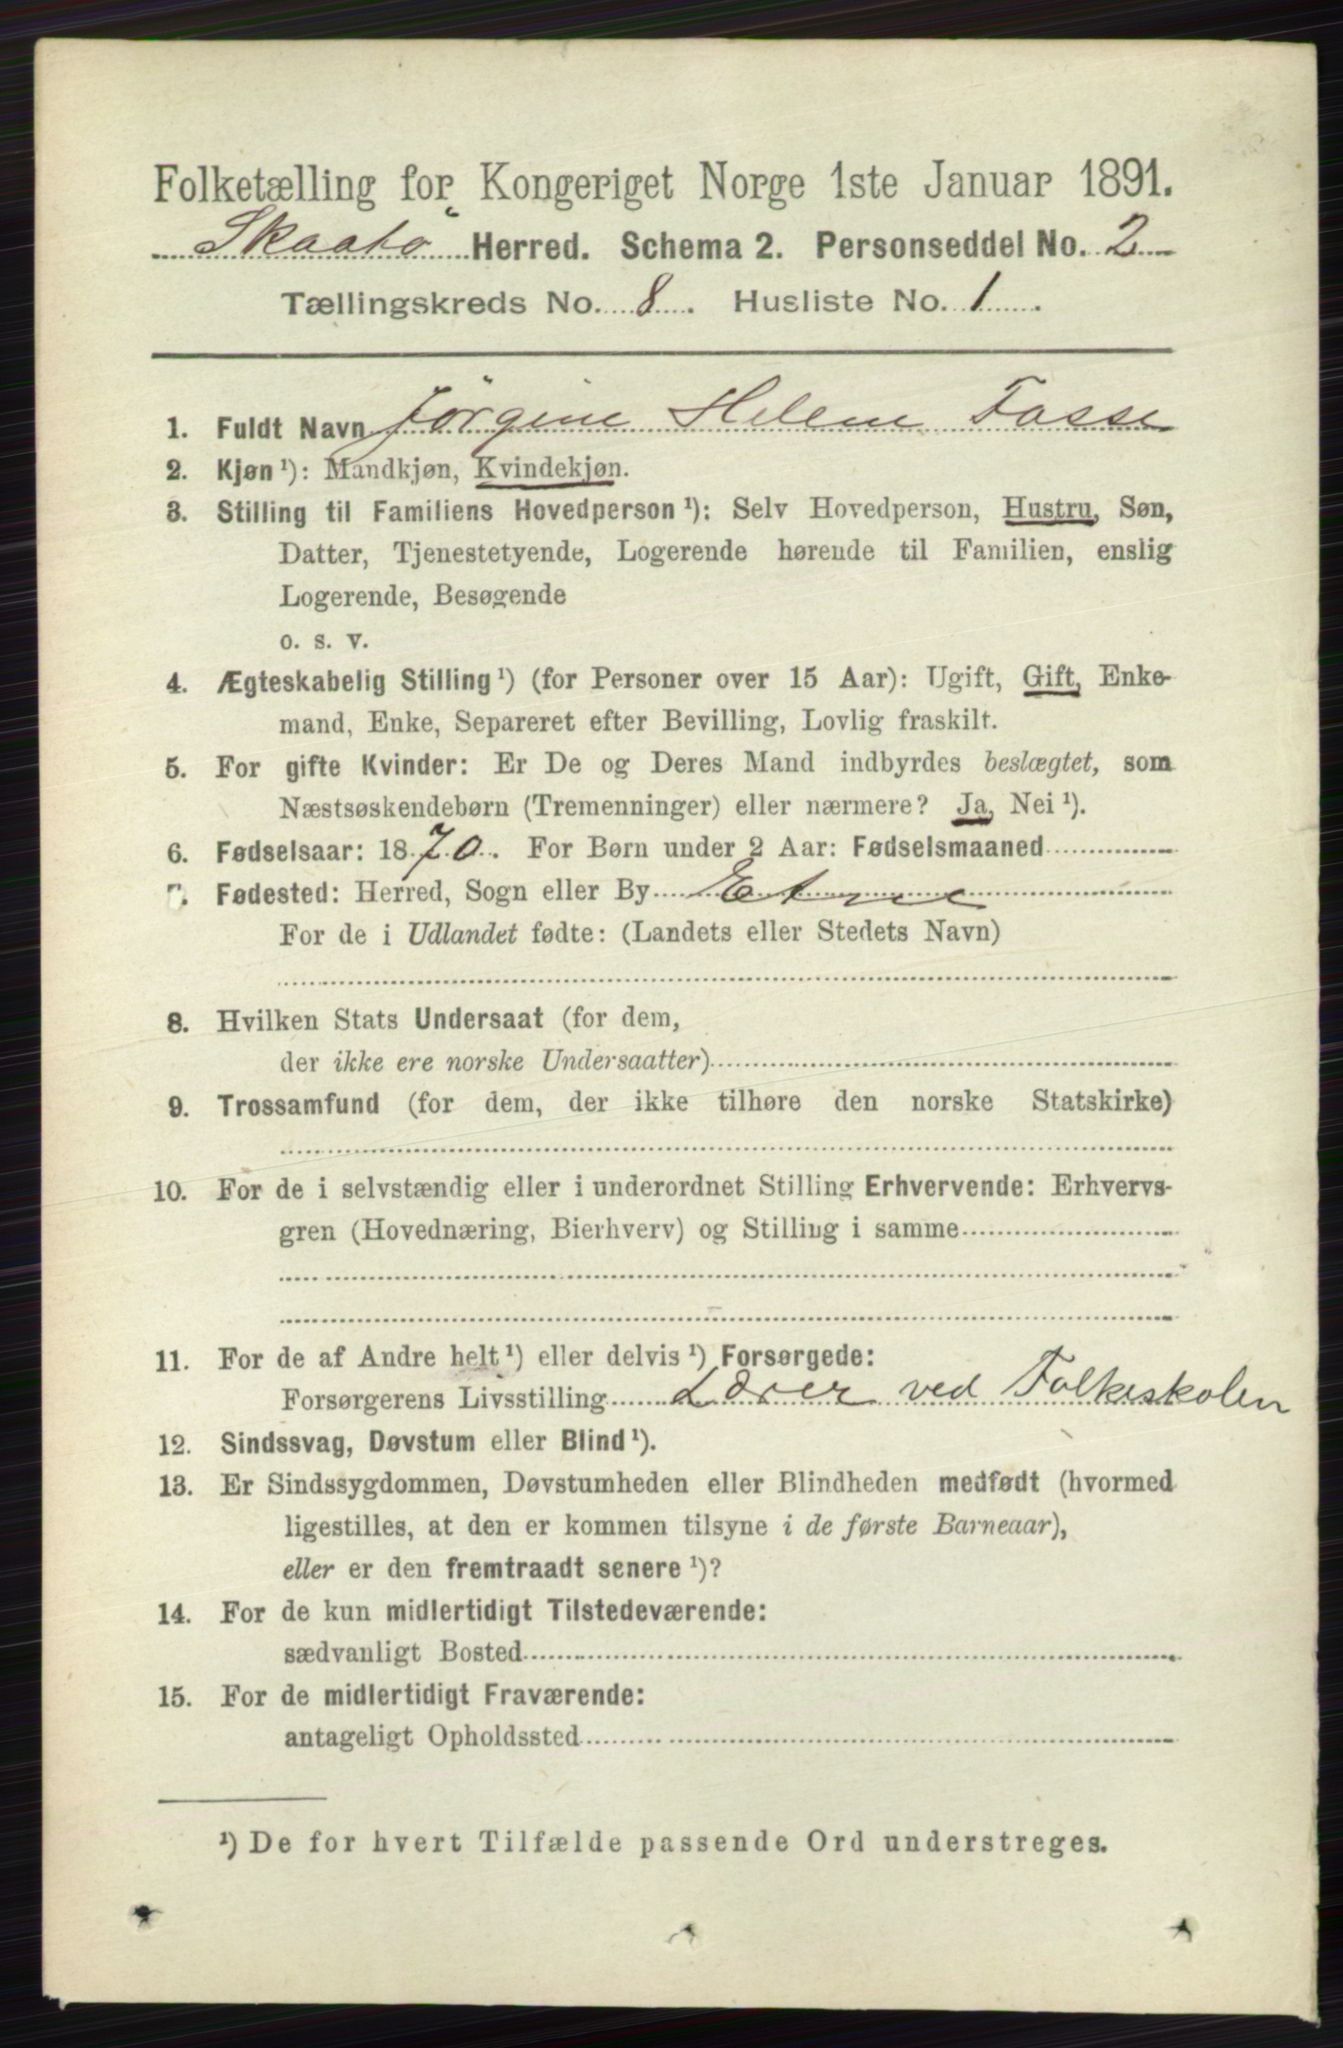 Folketælling for Kongeriget Norge 1ste Januar 1891.
Skaatö Herred. Schema 2. Personseddel No. 2
Tællingskreds No. 8. Husliste No. 1.
1. Fuldt Navn Jörgine Helene Fosse
2. Kjøn ¹): Mandkjøn, Kvindekjøn.
3. Stilling til Familiens Hovedperson ¹): Selv Hovedperson, Hustru, Søn,
Datter, Tjenestetyende, Logerende hørende til Familien, enslig
Logerende, Besøgende
o. s. v.
4. Ægteskabelig Stilling ¹) (for Personer over 15 Aar): Ugift, Gift, Enke-
mand, Enke, Separeret efter Bevilling, Lovlig fraskilt.
5. For gifte Kvinder: Er De og Deres Mand indbyrdes beslægtet, som
Næstsøskendebørn (Tremenninger) eller nærmere? Ja, Nei ¹).
6. Fødselsaar: 1870. For Børn under 2 Aar: Fødselsmaaned
7. Fødested: Herred, Sogn eller By Etne
For de i Udlandet fødte: (Landets eller Stedets Navn)
8. Hvilken Stats Undersaat (for dem,
der ikke ere norske Undersaatter)
9. Trossamfund (for dem, der ikke tilhøre den norske Statskirke)
10. For de i selvstændig eller i underordnet Stilling Erhvervende: Erhvervs-
gren (Hovednæring, Bierhverv) og Stilling i samme
11. For de af Andre helt ¹) eller delvis ¹) Forsørgede:
Forsørgerens Livsstilling Lærer ved Folkeskolen
12. Sindssvag, Døvstum eller Blind ¹).
13. Er Sindssygdommen, Døvstumheden eller Blindheden medfødt (hvormed
ligestilles, at den er kommen tilsyne i de første Barneaar),
eller er den fremtraadt senere ¹)?
14. For de kun midlertidigt Tilstedeværende:
sædvanligt Bosted
15. For de midlertidigt Fraværende:
antageligt Opholdssted
¹) De for hvert Tilfælde passende Ord understreges.